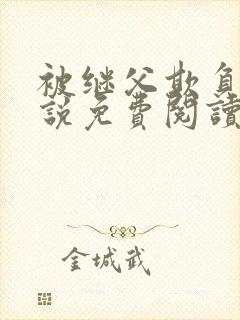 被继父欺负
說免費閱讀
金城武